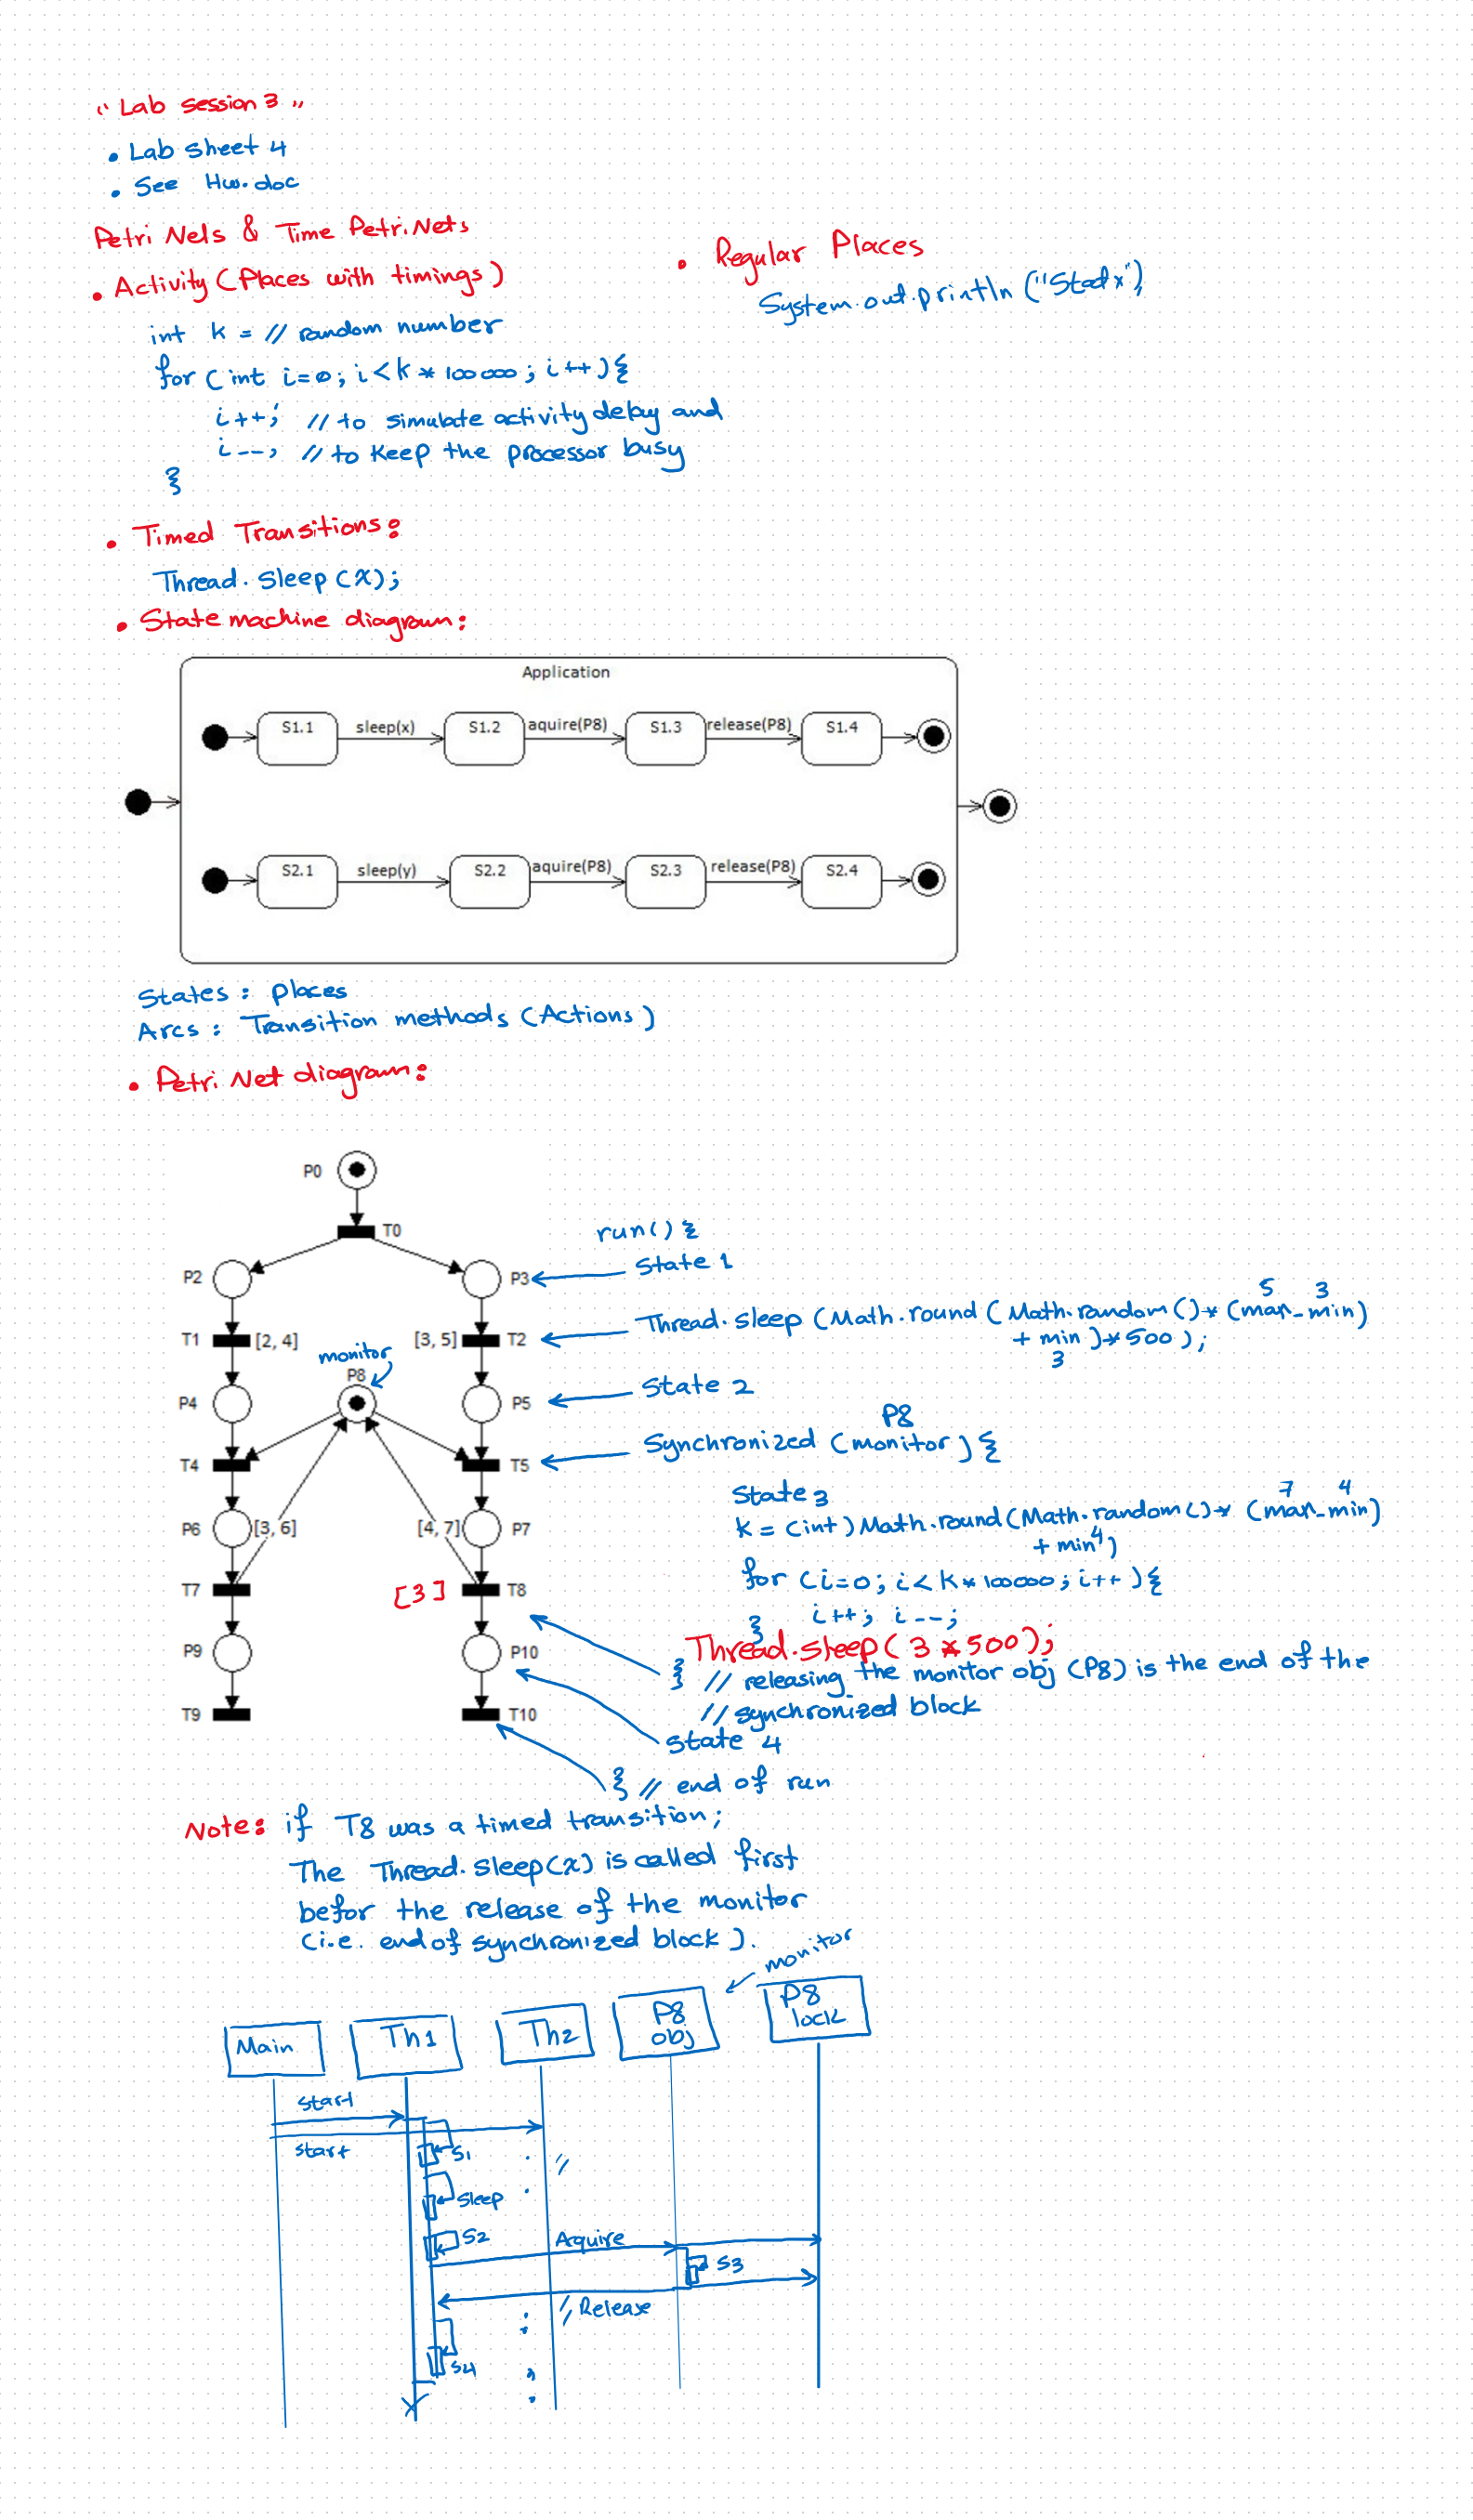 "Lab session 3"
• Lab sheet 4
• See Hw.doc
Petri Nets & Time Petri.Nets
• Activity (Places with timings)
int k = // random number
for (int i=0; i<k * 100000; i++){
i++; // to simulate activity delay and
i--; // to keep the processor busy
}
• Regular Places
System.out.println ("State x")
• Timed Transitions:
Thread.sleep (x);
• State machine diagram:
Application
S1.1 sleep(x) S1.2 aquire(P8) S1.3 release(P8) S1.4
S2.1 sleep(y) S2.2 aquire(P8) S2.3 release(P8) S2.4
States: places
Arcs: Transition methods (Actions)
• Petri Net diagram:
P0
T0
run() {
P2 P3 State 1
T1 [2, 4] [3, 5] T2 Thread.sleep (Math.round (Math.random() * (max - min)
5 3
+ min) * 500);
3
monitor
P8
P4 P5 State 2
P8
T4 T5 Synchronized (monitor) {
State 3
P6 [3, 6] [4, 7] P7 k = (int) Math.round (Math.random() * (max - min)
7 4
+ min)
4
for (i=0; i<k * 100000; i++){
T7 [3] T8
i++; i--;
}
P9 P10 Thread.sleep (3 * 500);
} // releasing the monitor obj (P8) is the end of the
// synchronized block
T9 T10
State 4
} // end of run
Note: if T8 was a timed transition;
The Thread.sleep(x) is called first
befor the release of the monitor
(i.e. end of synchronized block).
monitor
Main Th1 Th2 P8 obj P8 lock
start
start
S1 //
sleep
S2 Acquire
S3
// Release
S4